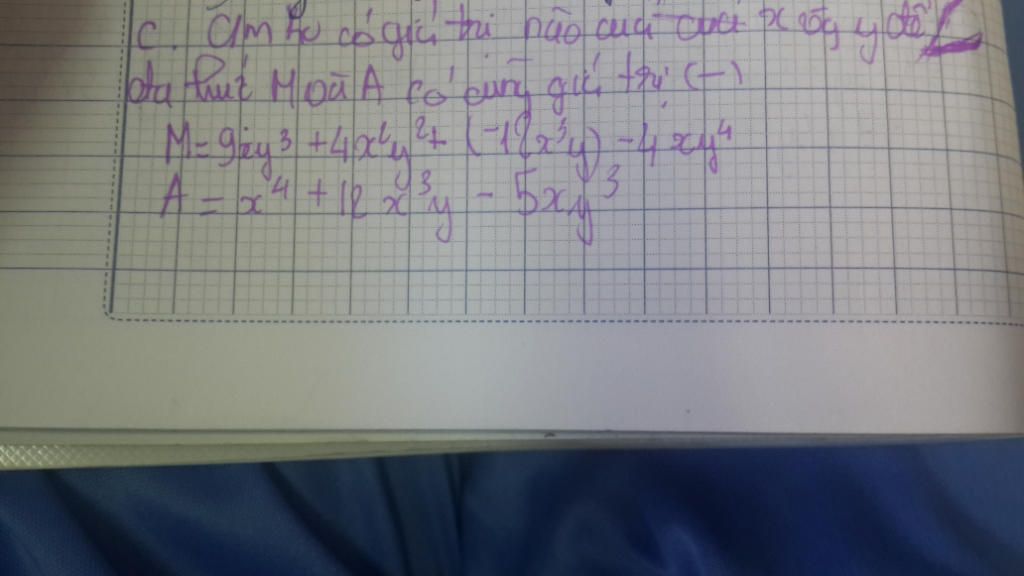 c. Tìm xem có giá trị nào của của x và y để
đa thức M và A có cùng giá trị (-)
M = 9xy³ + 4x²y² + (-12x³y) - 4xy⁴
A = x⁴ + 12x³y - 5xy³